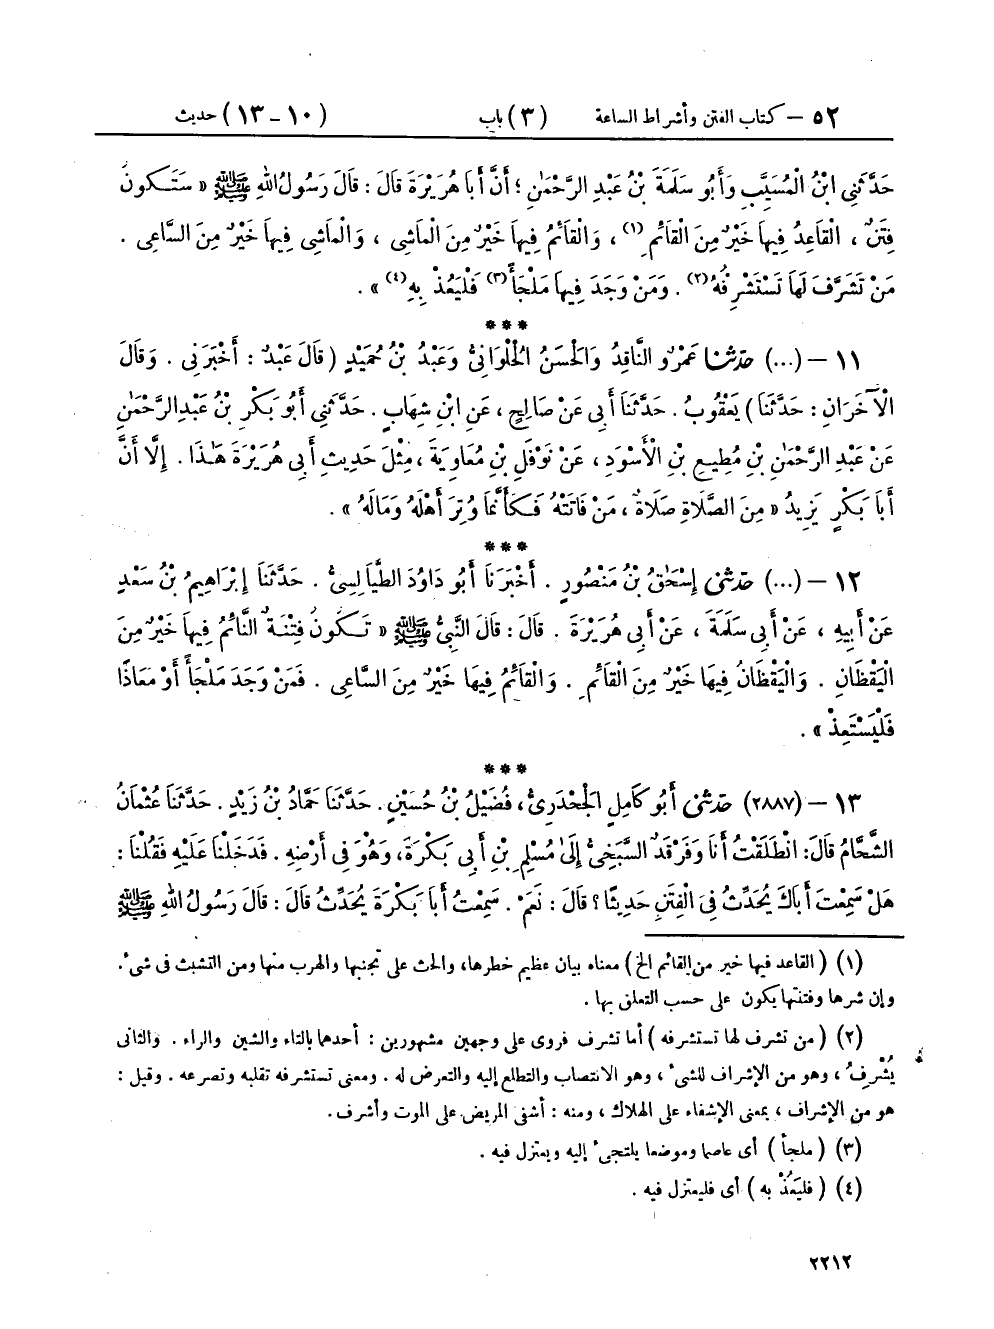 ٥٢ – كتاب الفتن وأشراط الساعة (٣) باب (١٠-١٣) حديث
حَدَّثَنِي ابْنُ الْمُسَيَّبِ وَأَبُو سَلَمَةَ بْنُ عَبْدِ الرَّحْمٰنِ ؛ أَنَّ أَبَا هُرَيْرَةَ قَالَ : قَالَ رَسُولُ اللهِ ﷺ « سَتَكُونُ
فِتَنٌ ، الْقَاعِدُ فِيهَا خَيْرٌ مِنَ الْقَائِمِ (١) ، وَالْقَائِمُ فِيهَا خَيْرٌ مِنَ الْمَاشِي ، وَالْمَاشِي فِيهَا خَيْرٌ مِنَ السَّاعِي .
مَنْ تَشَرَّفَ لَهَا تَسْتَشْرِفُهُ (٢) . وَمَنْ وَجَدَ فِيهَا مَلْجَأً (٣) فَلْيَعُذْ بِهِ (٤) » .
***
١١ – (...) حَدَّثَنَا عَمْرٌو النَّاقِدُ وَالْحَسَنُ الْحُلْوَانِيُّ وَعَبْدُ بْنُ حُمَيْدٍ ( قَالَ عَبْدٌ : أَخْبَرَنِي . وَقَالَ
الْآخَرَانِ : حَدَّثَنَا ) يَعْقُوبُ . حَدَّثَنَا أَبِي عَنْ صَالِحٍ ، عَنِ ابْنِ شِهَابٍ . حَدَّثَنِي أَبُو بَكْرِ بْنُ عَبْدِ الرَّحْمٰنِ
عَنْ عَبْدِ الرَّحْمٰنِ بْنِ مُطِيعِ بْنِ الْأَسْوَدِ ، عَنْ نَوْفَلِ بْنِ مُعَاوِيَةَ ، مِثْلَ حَدِيثِ أَبِي هُرَيْرَةَ هٰذَا . إِلَّا أَنَّ
أَبَا بَكْرٍ يَزِيدُ « مِنَ الصَّلَاةِ صَلَاةٌ ، مَنْ فَاتَتْهُ فَكَأَنَّمَا وُتِرَ أَهْلَهُ وَمَالَهُ » .
***
١٢ – (...) حَدَّثَنِي إِسْحٰقُ بْنُ مَنْصُورٍ . أَخْبَرَنَا أَبُو دَاوُدَ الطَّيَالِسِيُّ . حَدَّثَنَا إِبْرَاهِيمُ بْنُ سَعْدٍ
عَنْ أَبِيهِ ، عَنْ أَبِي سَلَمَةَ ، عَنْ أَبِي هُرَيْرَةَ . قَالَ : قَالَ النَّبِيُّ ﷺ « تَكُونُ فِتْنَةٌ النَّائِمُ فِيهَا خَيْرٌ مِنَ
الْيَقْظَانِ . وَالْيَقْظَانُ فِيهَا خَيْرٌ مِنَ الْقَائِمِ . وَالْقَائِمُ فِيهَا خَيْرٌ مِنَ السَّاعِي . فَمَنْ وَجَدَ مَلْجَأً أَوْ مَعَاذًا
فَلْيَسْتَعِذْ » .
***
١٣ – (٢٨٨٧) حَدَّثَنِي أَبُو كَامِلٍ الْجَحْدَرِيُّ ، فُضَيْلُ بْنُ حُسَيْنٍ . حَدَّثَنَا حَمَّادُ بْنُ زَيْدٍ . حَدَّثَنَا عُثْمَانُ
الشَّحَّامُ قَالَ : انْطَلَقْتُ أَنَا وَفَرْقَدٌ السَّبَخِيُّ إِلَىٰ مُسْلِمِ بْنِ أَبِي بَكْرَةَ ، وَهُوَ فِي أَرْضِهِ . فَدَخَلْنَا عَلَيْهِ فَقُلْنَا :
هَلْ سَمِعْتَ أَبَاكَ يُحَدِّثُ فِي الْفِتَنِ حَدِيثًا ؟ قَالَ : نَعَمْ . سَمِعْتُ أَبَا بَكْرَةَ يُحَدِّثُ قَالَ : قَالَ رَسُولُ اللهِ ﷺ
(١) ( القاعد فيها خير من القائم الخ ) معناه بيان عظيم خطرها، والحث على تجنبها والهرب منها ومن التشبث فى شىء.
وإن شرها وفتنتها يكون على حسب التعلق بها .
(٢) ( من تشرف لها تستشرفه ) أما تشرف فروى على وجهين مشهورين : أحدهما بالتاء والشين والراء . والثانى
يُشْرِفُ ، وهو من الإشراف للشىء ، وهو الانتصاب والتطلع إليه والتعرض له . ومعنى تستشرفه تقلبه وتصرعه . وقيل :
هو من الإشراف ، بمعنى الإشفاء على الهلاك ، ومنه : أشفى المريض على الموت وأشرف.
(٣) ( ملجأ ) أى عاصما وموضعا يلتجىء إليه ويعتزل فيه .
(٤) ( فليَعُذْ به ) أى فليعتزل فيه .
٢٢١٢